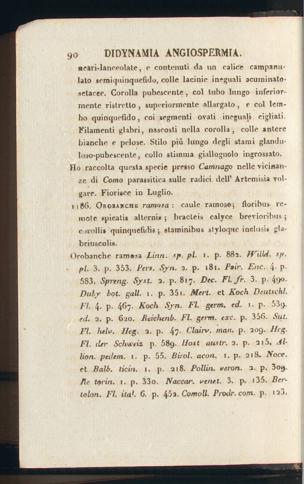 90 DIDYNAMIA ANGIOSPERMIA.
neari-lanceolate, e contenuti da un calice campanu-
lato semiquinquefido, colle lacinie ineguali acuminato-
setacee. Corolla pubescente, col tubo lungo inferior-
mente ristretto, superiormente allargato, e col lem-
bo quinquefido, coi segmenti ovati ineguali cigliati.
Filamenti glabri, nascosti nella corolla, colle antere
bianche e pelose. Stilo più lungo degli stami glandu-
loso-pubescente, collo stimma gialloguolo ingrossato.
Ho raccolta questa specie presso Camnago nelle vicinan-
ze di Como parassitica sulle radici dell' Artemisia vol-
gare. Fiorisce in Luglio.
1186. OROBANCHE ramosa: caule ramoso; floribus re-
mote spicatis alternis; bracteis calyce brevioribus;
corollis quinquefidis; staminibus styloque inclusis gla-
briusculis.
Orobanche ramosa Linn. sp. pl. 1. p. 882. Willd. sp.
pl. 3. p. 353. Pers. Syn. 2. p. 181. Poir. Enc. 4. p.
583. Spreng. Syst. 2. p. 817. Dec. Fl. fr. 3. p. 490.
Duby bot. gall. 1. p. 351. Mert. et Koch Deutschl.
Fl. 4. p. 467. Koch. Syn. Fl. germ. ed. 1. p. 539.
ed. 2. p. 620. Reichenb. Fl. germ. exc. p. 356. Sut.
Fl. helv. Heg. 2. p. 47. Clairv. man. p. 209. Heg.
Fl. der Schweis p. 589. Host austr. 2. p. 215. Al-
lion. pedem. 1. p. 55. Birol. acon. 1. p. 218. Noce.
et Balb. ticin. 1. p. 218. Pollin. veron. 2. p. 309.
Re torin. 1. p. 330. Naccar. venet. 3. p. 135. Ber-
tolon. Fl. ital. 6. p. 452. Comoll. Prodr. com. p. 123.